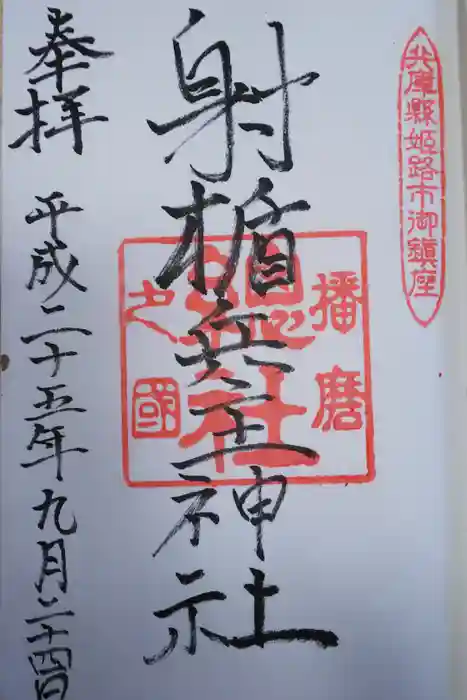 兵庫縣姫路市御鎮座
射楯兵主神社
播磨
之國
総社
奉拝
平成二十五年九月二十四日